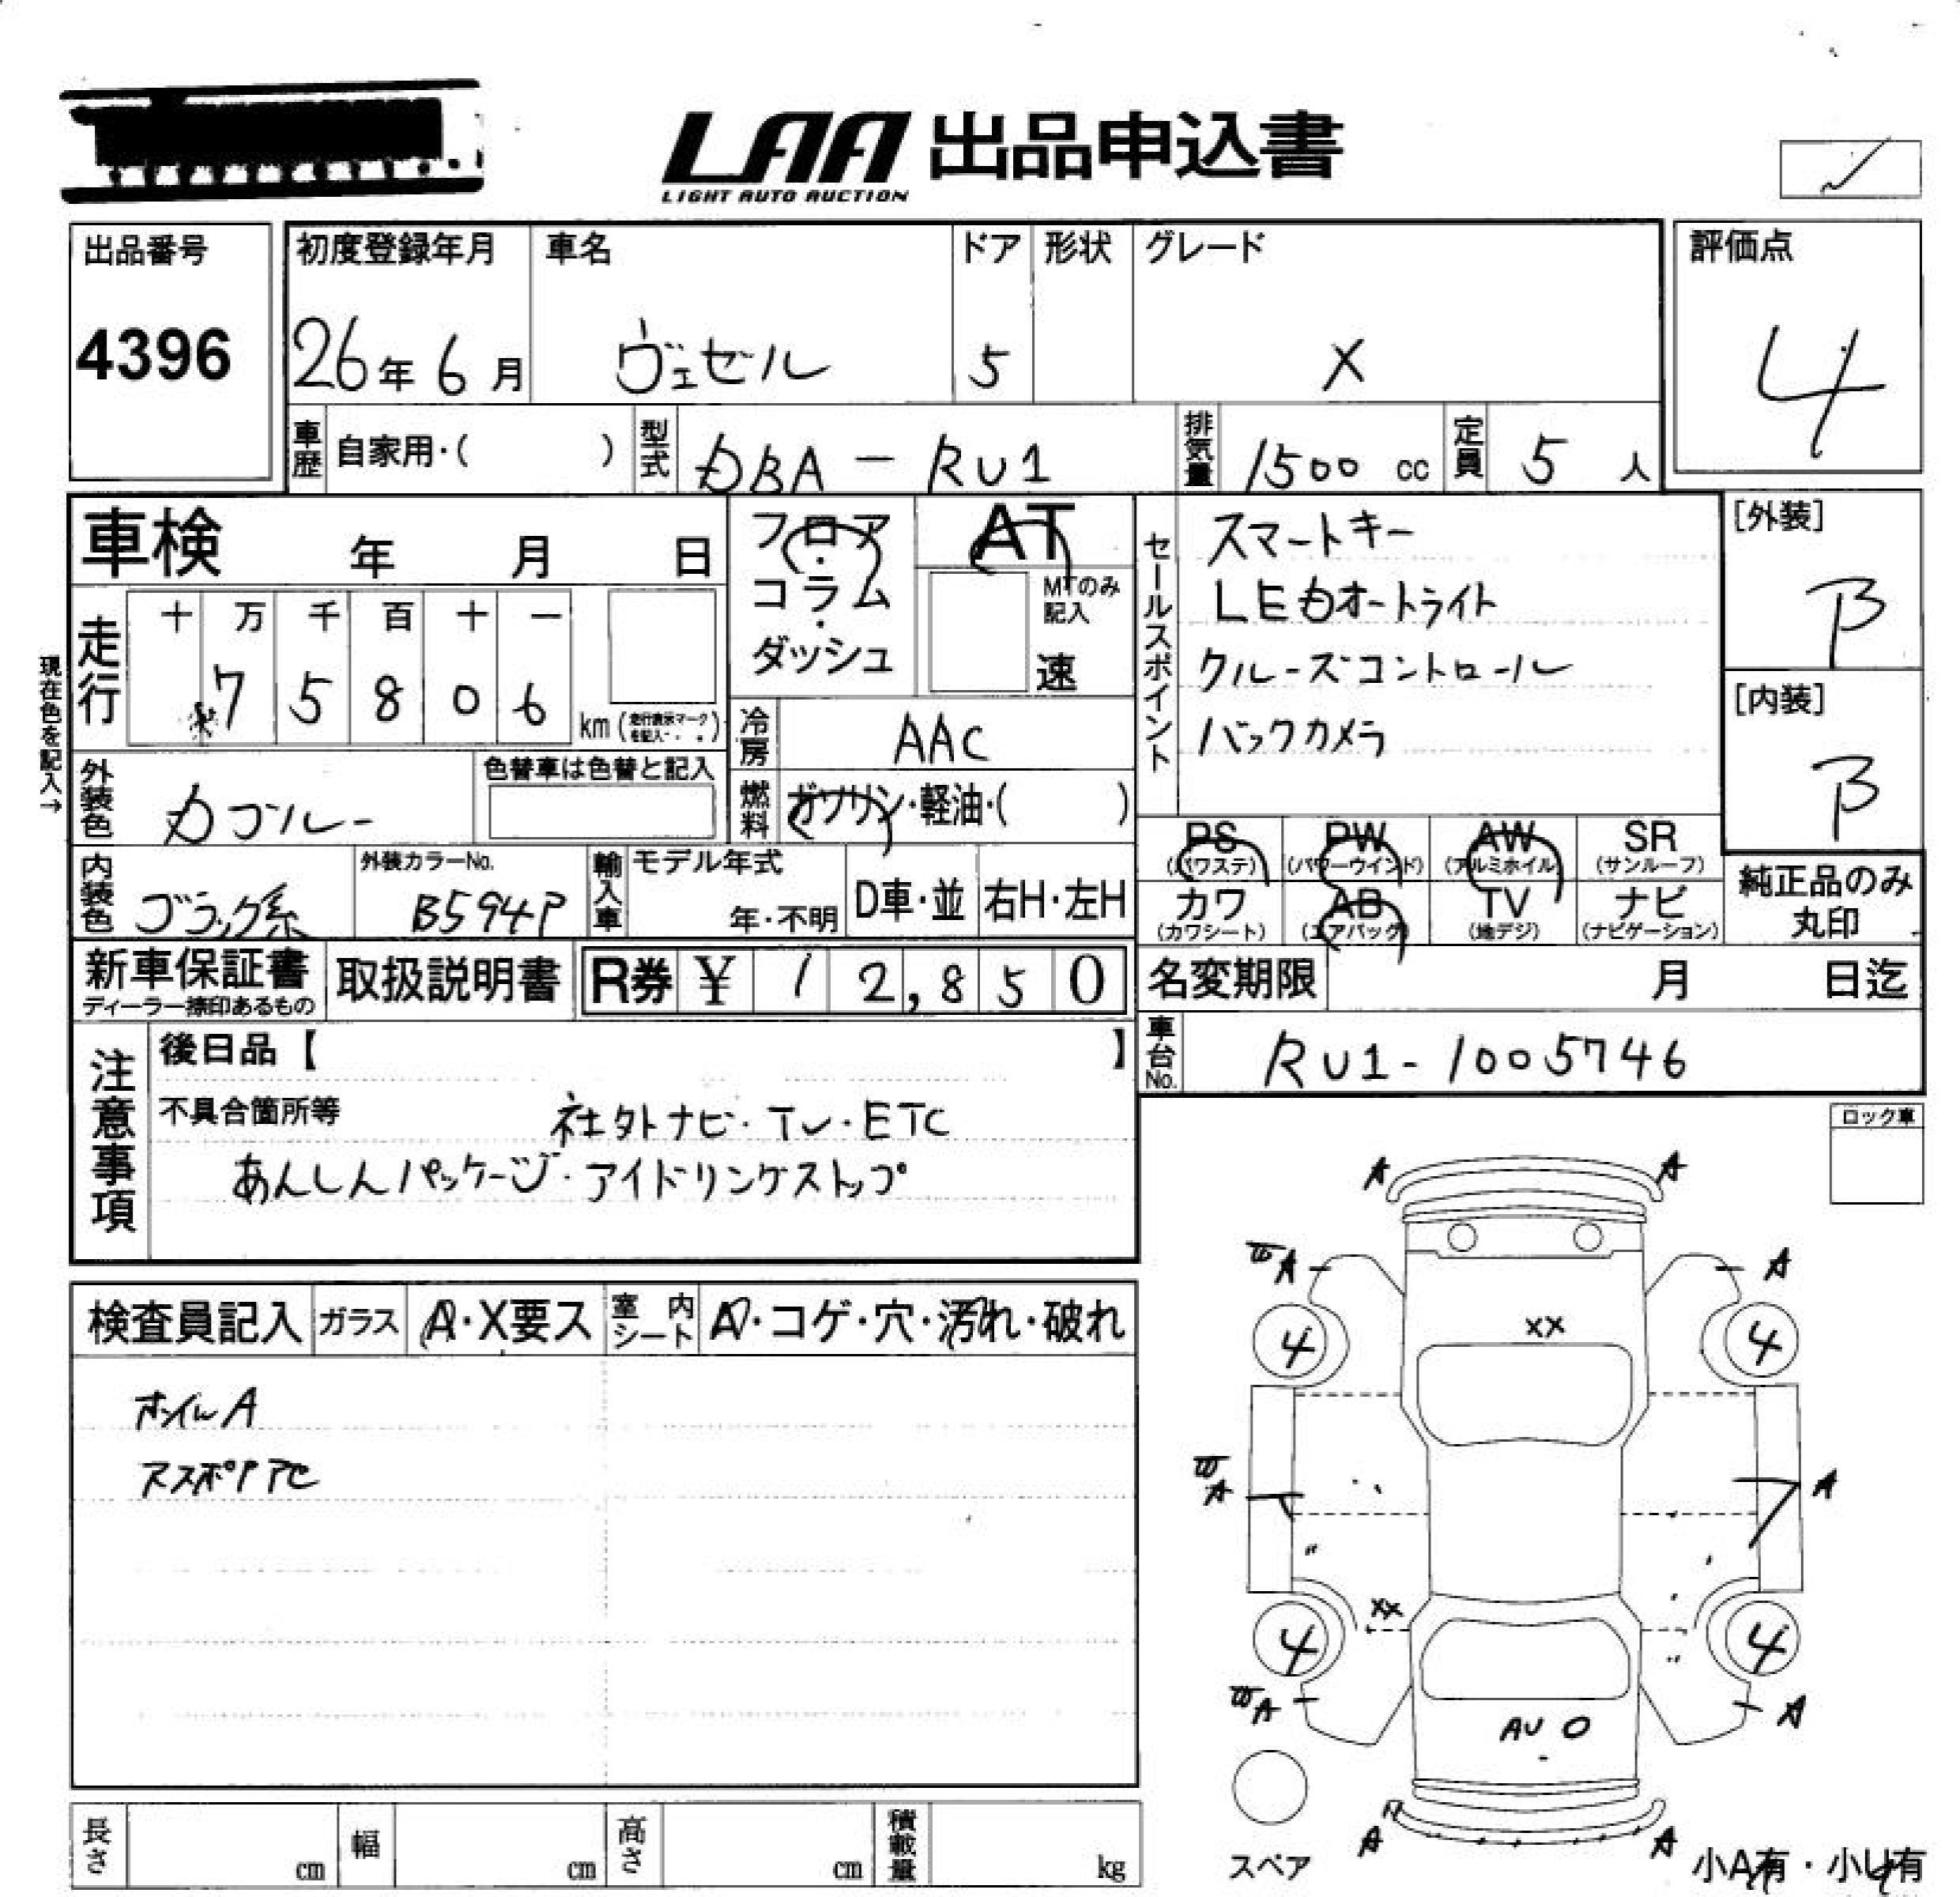 LAA 出品申込書
LIGHT AUTO AUCTION
出品番号
4396
初度登録年月
26年 6月
車名
ヴェゼル
ドア
5
形状
グレード
X
評価点
4
車歴 自家用・( )
型式 DBA - RU1
排気量 1500 cc
定員 5 人
車検 年 月 日
フロア・コラム・ダッシュ
AT
MTのみ記入
速
セールスポイント
スマートキー
LEDオートライト
クルーズコントロール
バックカメラ
[外装]
B
[内装]
B
現在色を記入→
走行
十 万 千 百 十 一
7 5 8 0 6 km (走行表示マークを記入)
冷房 AAC
燃料 ガソリン・軽油・( )
外装色 Dブルー
色替車は色替と記入
内装色 ブラック系
外装カラーNo.
B594P
輸入車 モデル年式
年・不明
D車・並 右H・左H
PS (パワステ)
PW (パワーウインド)
AW (アルミホイル)
SR (サンルーフ)
カワ (カワシート)
AB (エアバッグ)
TV (地デジ)
ナビ (ナビゲーション)
純正品のみ丸印
新車保証書
ディーラー捺印あるもの
取扱説明書
R券 ¥ 1 2,8 5 0
名変期限 月 日迄
車台No. RU1-1005746
注意事項
後日品【 】
不具合箇所等
社外ナビ・TV・ETC
あんしんパッケージ・アイドリングストップ
ロック車
検査員記入
ガラス A・X要ス
室内シート A・コゲ・穴・汚れ・破れ
ホイルA
A A
A A
XX
4 4
A A
XX
4 4
A A
AU
A A
スペア
小A有・小U有
長さ cm
幅 cm
高さ cm
積載量 kg